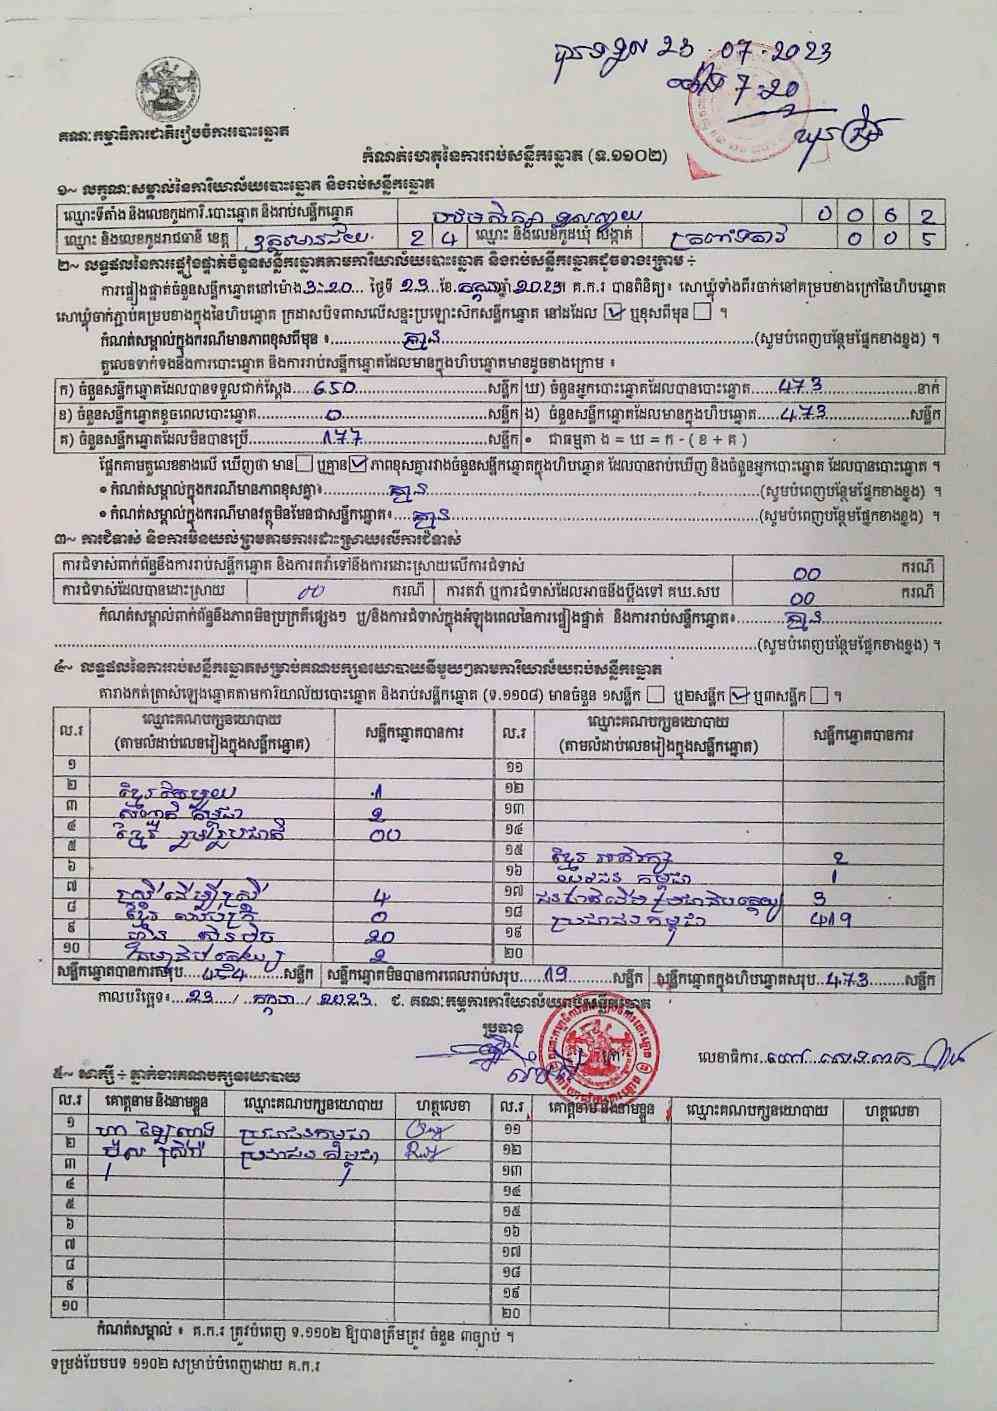 23.07.2023
7:20
គណៈកម្មាធិការជាតិរៀបចំការបោះឆ្នោត
កំណត់ហេតុនៃការរាប់សន្លឹកឆ្នោត (ទ.១១០២)
១~ លក្ខណៈសម្គាល់នៃការិយាល័យបោះឆ្នោត និងរាប់សន្លឹកឆ្នោត
ឈ្មោះទីតាំង និងលេខកូដការិ.បោះឆ្នោត និងរាប់សន្លឹកឆ្នោត 0 0 6 2
ឈ្មោះ និងលេខកូដរាជធានី ខេត្ត ឧត្តរមានជ័យ 2 4 ឈ្មោះ និងលេខកូដឃុំ សង្កាត់ 0 0 5
២~ លទ្ធផលនៃការផ្ទៀងផ្ទាត់ចំនួនសន្លឹកឆ្នោតតាមការិយាល័យបោះឆ្នោត និងរាប់សន្លឹកឆ្នោតដូចខាងក្រោម ÷
ការផ្ទៀងផ្ទាត់ចំនួនសន្លឹកឆ្នោតនៅម៉ោង 3:20 ថ្ងៃទី 23 ខែ កក្កដា ឆ្នាំ 2023 គ.ក.រ បានពិនិត្យ៖ សោឃ្លុំទាំងពីរចាក់នៅគម្របខាងក្រៅនៃហិបឆ្នោត
សោឃ្លុំចាក់ភ្ជាប់គម្របខាងក្នុងនៃហិបឆ្នោត ក្រដាសបិទពាសលើសន្ទះប្រឡោះសឹកសន្លឹកឆ្នោត នៅដដែល ឬខុសពីមុន ។
កំណត់សម្គាល់ក្នុងករណីមានភាពខុសពីមុន ៖ គ្មាន (សូមបំពេញបន្ថែមផ្នែកខាងខ្នង) ។
តួលេខទាក់ទងនឹងការបោះឆ្នោត និងការរាប់សន្លឹកឆ្នោតដែលមានក្នុងហិបឆ្នោតមានដូចខាងក្រោម ៖
ក) ចំនួនសន្លឹកឆ្នោតដែលបានទទួលជាក់ស្តែង 650 សន្លឹក ឃ) ចំនួនអ្នកបោះឆ្នោតដែលបានបោះឆ្នោត 473 នាក់
ខ) ចំនួនសន្លឹកឆ្នោតខូចពេលបោះឆ្នោត 0 សន្លឹក ង) ចំនួនសន្លឹកឆ្នោតដែលមានក្នុងហិបឆ្នោត 473 សន្លឹក
គ) ចំនួនសន្លឹកឆ្នោតដែលមិនបានប្រើ 177 សន្លឹក • ជាធម្មតា ង = ឃ = ក - ( ខ + គ )
ផ្អែកតាមតួលេខខាងលើ ឃើញថា មាន ឬគ្មាន ភាពខុសគ្នារវាងចំនួនសន្លឹកឆ្នោតក្នុងហិបឆ្នោត ដែលបានរាប់ឃើញ និងចំនួនអ្នកបោះឆ្នោត ដែលបានបោះឆ្នោត ។
• កំណត់សម្គាល់ក្នុងករណីមានភាពខុសគ្នា៖ គ្មាន (សូមបំពេញបន្ថែមផ្នែកខាងខ្នង) ។
• កំណត់សម្គាល់ក្នុងករណីមានវត្ថុមិនមែនជាសន្លឹកឆ្នោត៖ គ្មាន (សូមបំពេញបន្ថែមផ្នែកខាងខ្នង) ។
៣~ ការជំទាស់ និងការមិនយល់ព្រមតាមការដោះស្រាយលើការជំទាស់
ការជំទាស់ពាក់ព័ន្ធនឹងការរាប់សន្លឹកឆ្នោត និងការតវ៉ាទៅនឹងការដោះស្រាយលើការជំទាស់ 00 ករណី
ការជំទាស់ដែលបានដោះស្រាយ 00 ករណី ការតវ៉ា ឬការជំទាស់ដែលអាចនឹងប្តឹងទៅ គឃ.សប 00 ករណី
កំណត់សម្គាល់ពាក់ព័ន្ធនឹងភាពមិនប្រក្រតីផ្សេងៗ ឬ/និងការជំទាស់ក្នុងអំឡុងពេលនៃការផ្ទៀងផ្ទាត់ និងការរាប់សន្លឹកឆ្នោត៖ គ្មាន
(សូមបំពេញបន្ថែមផ្នែកខាងខ្នង) ។
៤~ លទ្ធផលនៃការរាប់សន្លឹកឆ្នោតសម្រាប់គណបក្សនយោបាយនីមួយៗតាមការិយាល័យរាប់សន្លឹកឆ្នោត
តារាងកត់ត្រាសំឡេងឆ្នោតតាមការិយាល័យបោះឆ្នោត និងរាប់សន្លឹកឆ្នោត (ទ.១១០៨) មានចំនួន ១សន្លឹក ឬ២សន្លឹក ឬ៣សន្លឹក ។
ល.រ ឈ្មោះគណបក្សនយោបាយ (តាមលំដាប់លេខរៀងក្នុងសន្លឹកឆ្នោត) សន្លឹកឆ្នោតបានការ ល.រ ឈ្មោះគណបក្សនយោបាយ (តាមលំដាប់លេខរៀងក្នុងសន្លឹកឆ្នោត) សន្លឹកឆ្នោតបានការ
១ ១១
២ 1 ១២
៣ 2 ១៣
៤ 00 ១៤
៥ ១៥ 2
៦ ១៦ 1
៧ ស្រី ដើម្បី ស្រី 4 ១៧ 3
៨ 0 ១៨ ប្រជាជនកម្ពុជា 419
៩ ហ្វ៊ុន ស៊ិន ប៉ិច 20 ១៩
១០ 2 ២០
សន្លឹកឆ្នោតបានការសរុប 454 សន្លឹក សន្លឹកឆ្នោតមិនបានការពេលរាប់សរុប 19 សន្លឹក សន្លឹកឆ្នោតក្នុងហិបឆ្នោតសរុប 473 សន្លឹក
កាលបរិច្ឆេទ៖ 23 / កក្កដា / 2023 ៩. គណៈកម្មការការិយាល័យរាប់សន្លឹកឆ្នោត
ប្រធាន
លេខាធិការ
៥~ សាក្សី ÷ ភ្នាក់ងារគណបក្សនយោបាយ
ល.រ គោត្តនាម និងនាមខ្លួន ឈ្មោះគណបក្សនយោបាយ ហត្ថលេខា ល.រ គោត្តនាម និងនាមខ្លួន ឈ្មោះគណបក្សនយោបាយ ហត្ថលេខា
១ ប្រជាជនកម្ពុជា ១១
២ ប្រជាជនកម្ពុជា ១២
៣ ១៣
៤ ១៤
៥ ១៥
៦ ១៦
៧ ១៧
៨ ១៨
៩ ១៩
១០ ២០
កំណត់សម្គាល់ ៖ គ.ក.រ ត្រូវបំពេញ ទ.១១០២ ឱ្យបានត្រឹមត្រូវ ចំនួន ៣ច្បាប់ ។
ទម្រង់បែបបទ ១១០២ សម្រាប់បំពេញដោយ គ.ក.រ